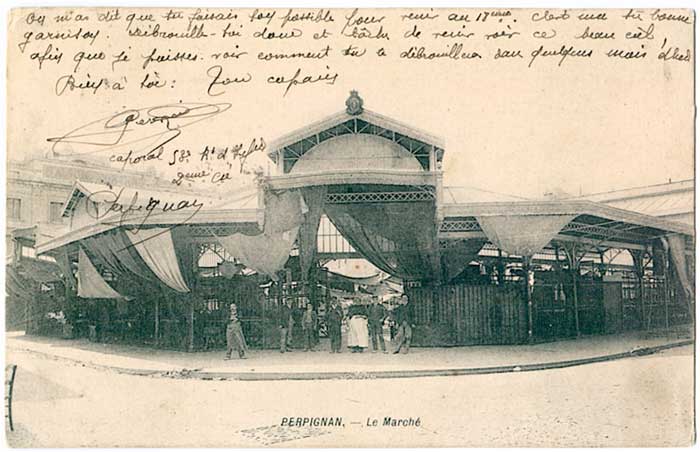 On m'as dit que tu faisais ton possible pour venir au 17ème. C'est une bonne
garnison. Débrouille-toi donc et tâche de venir voir ce beau ciel
afin que je puisses voir comment tu a débrouiller dans quelques mois
Bien à toi. Ton copain
caporal 53e Rt d'
2eme Cie
Perpignan
PERPIGNAN. — Le Marché